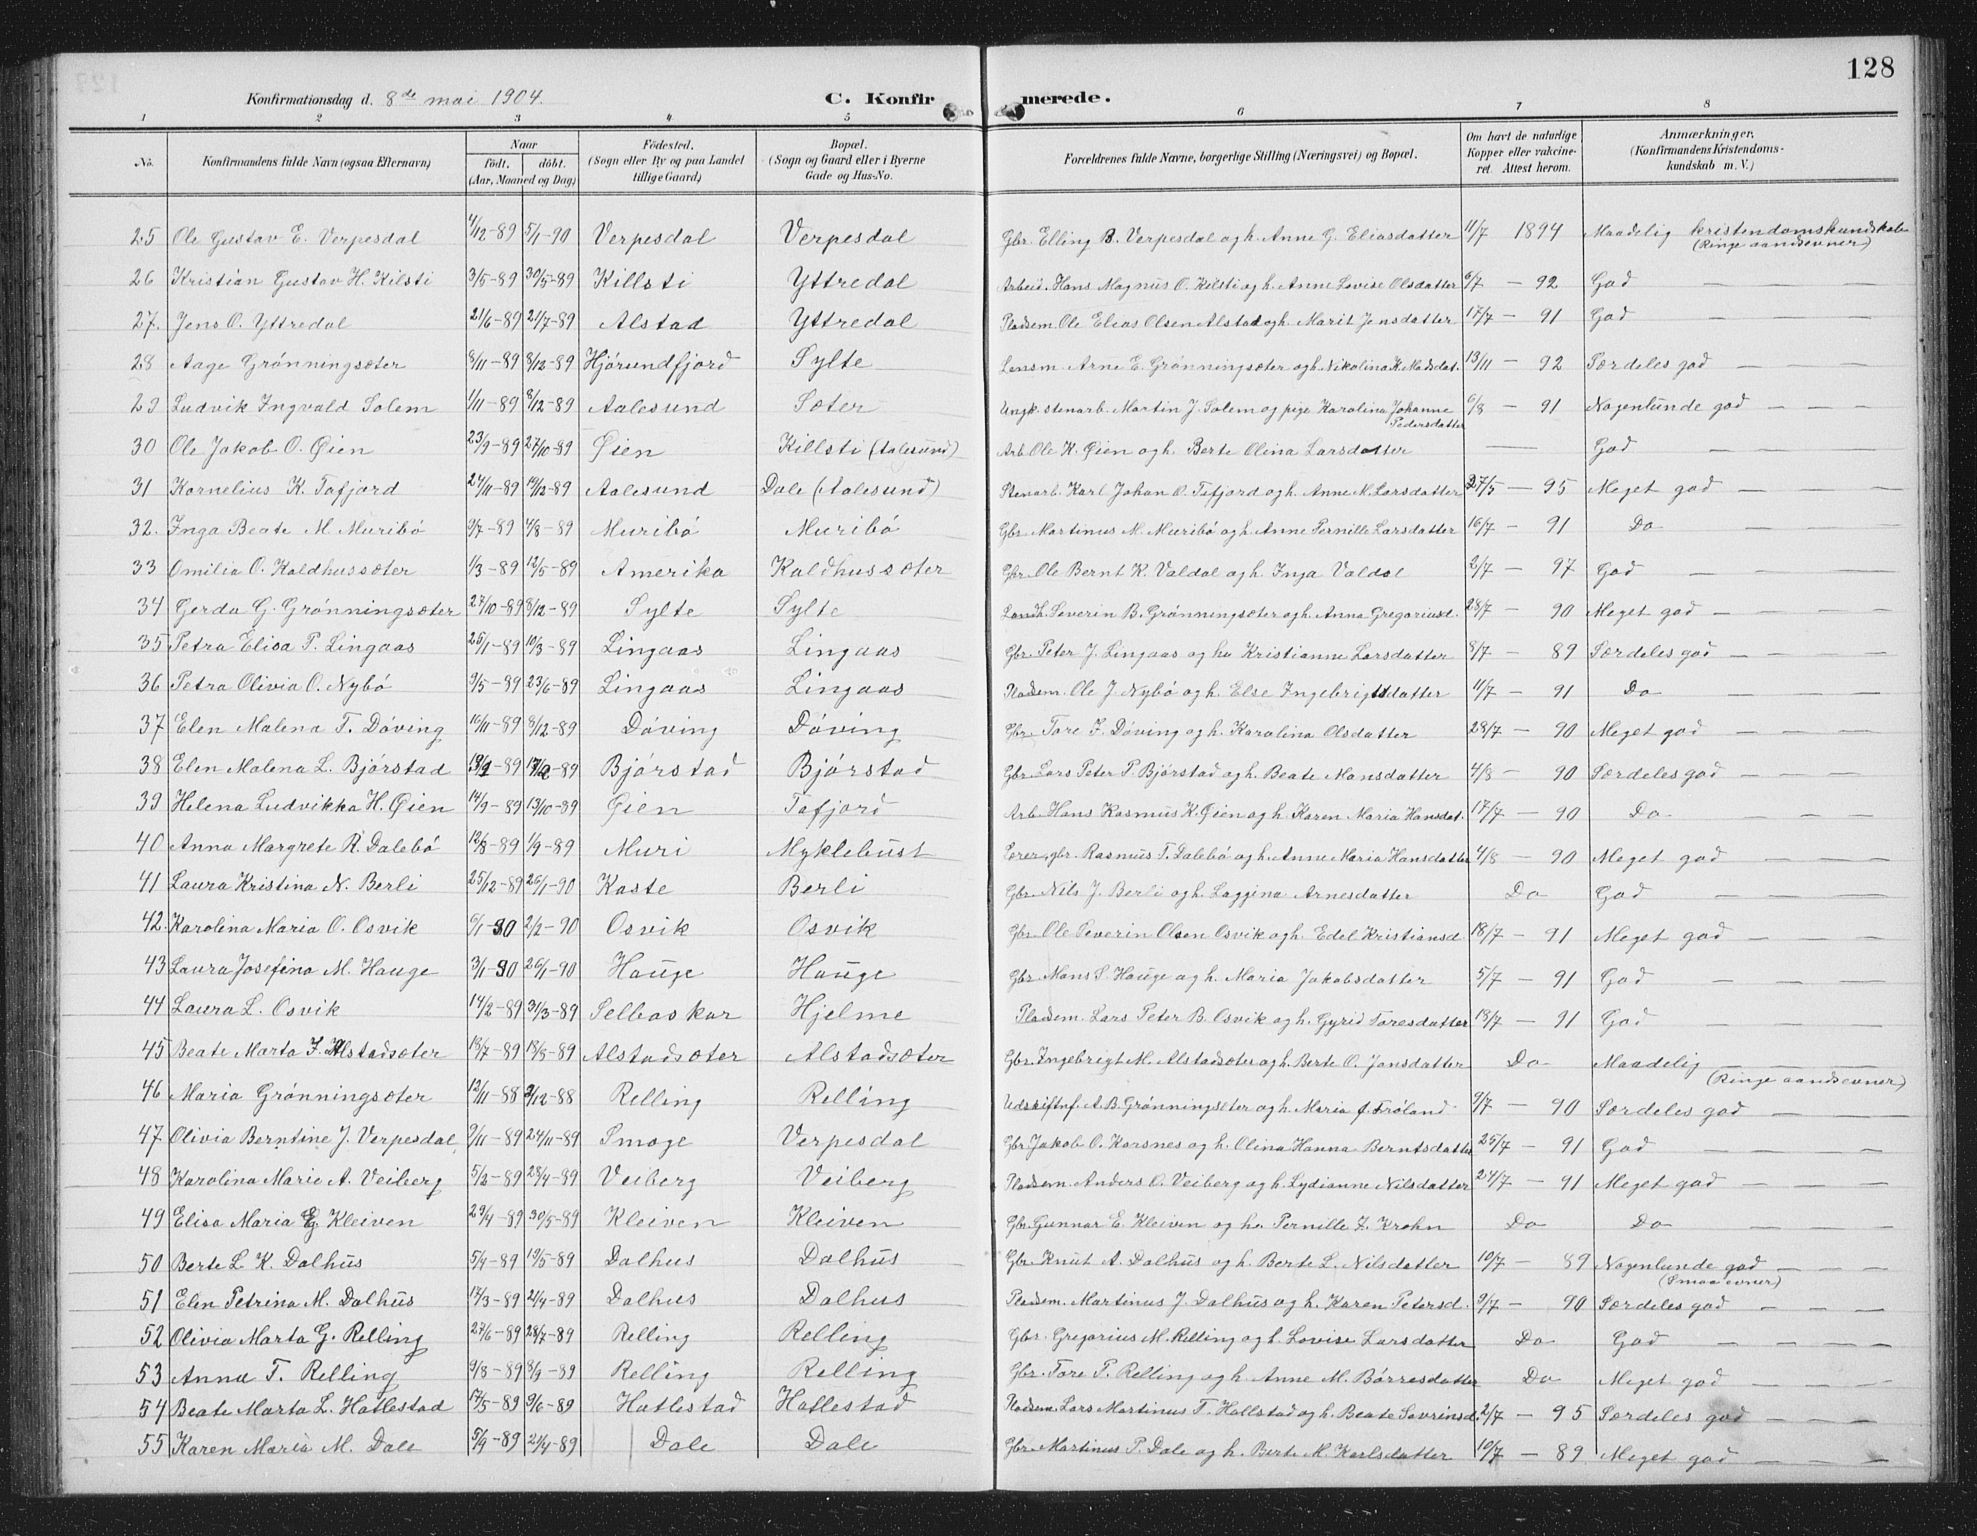 128
Konfirmationsdag d. 8de mai 1904.
C. Konfirmerede.
1 2 3 4 5 6 7 8
No. Konfirmandens fulde Navn (ogsaa Efternavn) Naar født. døbt. (Aar, Maaned og Dag) Fødested. (Sogn eller By og paa Landet tillige Gaard) Bopæl. (Sogn og Gaard eller i Byerne Gade og Hus-No. Forældrenes fulde Navne, borgerlige Stilling (Næringsvei) og Bopæl. Om havt de naturlige Kopper eller vakcineret. Attest herom. Anmærkninger, (Konfirmandens Kristendomskundskab m. V.)
25 Ole Gustav E. Verpesdal 4/12-89 5/1-90 Verpesdal Verpesdal Gbr. Elling B. Verpesdal og h. Anne G. Eliasdatter 11/7 1894 Maadelig kristendomskundskab
(Ringe aandsevner)
26 Kristian Gustav H. Kilsti 3/5-89 30/5-89 Killsti Yttredal Arbeid. Hans Magnus O. Kilsti og h. Anne Lovise Olsdatter 6/7 — 92 God — —
27. Jens O. Yttredal 21/6-89 21/7-89 Alstad Yttredal Pladsem. Ole Elias Olsen Alstad og h. Marit Jensdatter 17/7 — 91 God — —
28 Aage Grønningsæter 8/11-89 8/12-89 Hjørundfjord Sylte Lensm. Arne E. Grønningsæter og h. Nikolina K. Madsdat. 13/11 — 92 Særdeles god — — —
29 Ludvik Ingvald Solem 1/11-89 8/12-89 Aalesund Sæter Ungk. stenarb. Martin J. Solem og pige Karolina Johanne 6/8 — 91 Nogenlunde god — — —
Pedersdatter
30 Ole Jakob O. Øien 23/9-89 27/10-89 Øien Killsti (Aalesund) Arb. Ole K. Øien og h. Berte Olina Larsdatter — God — — —
31 Kornelius K. Tafjord 24/11-89 19/12-89 Aalesund Dale (Aalesund) Stenarb. Karl Johan O. Tafjord og h. Anne M. Larsdatter 27/5 — 95 Meget god — — —
32. Inga Beate M. Muribø 9/7-89 4/8-89 Muribø Muribø Gbr. Martinus M. Muribø og h. Anne Pernille Larsdatter 16/7 — 91 Do — — —
33 Omilia O. Kaldhussæter 1/3-89 12/5-89 Amerika Kaldhussæter Gbr. Ole Bernt K. Valdal og h. Inga Valdal 2/7 — 97 God — — —
34 Gerda G. Grønningsæter 27/10-89 8/12-89 Sylte Sylte Landh. Severin B. Grønningsæter og h. Anna Gregoriusd. 28/7 — 90 Meget god — — —
35 Petra Elisa P. Lingaas 25/1-89 10/3-89 Lingaas Lingaas Gbr. Peter J. Lingaas og hu Kristianne Larsdatter 8/7 — 89 Særdeles god — — —
36 Petra Olivia O. Nybø 9/5-89 23/6-89 Lingaas Lingaas Pladsem. Ole J. Nybø og h. Else Ingebrigtsdatter 11/7 — 91 Do — — —
37 Elen Malena T. Døving 10/11-89 8/12-89 Døving Døving Gbr. Tore J. Døving og h. Karolina Olsdatter 28/7 — 90 Meget god — — —
38 Elen Malena L. Bjørstad -89 -89 Bjørstad Bjørstad Gbr. Lars Peter P. Bjørstad og h. Beate Mansdatter 4/8 — 90 Særdeles god — — —
39 Helena Ludvikka H. Øien 14/9-89 13/10-89 Øien Tafjord Arb. Hans Rasmus K. Øien og h. Karen Maria Hansdat. 17/7 — 90 Do — — —
40 Anna Margrete R. Dalebø 12/8-89 1/9-89 Muri Myklebust gbr. Rasmus T. Dalebø og h. Anne Maria Hansdatter 4/8 — 90 Meget god — — —
41 Laura Kristina N. Berli 25/12-89 26/1-90 Kaste Berli Gbr. Nils J. Berli og h. Laggina Arnesdatter Do God — — —
42. Karolina Maria O. Osvik 6/1-90 2/2-90 Osvik Osvik Gbr. Ole Severin Olsen Osvik og h. Edel Kristiansd. 18/7 — 91 Meget god — — —
43 Laura Josefina M. Hauge 3/1-90 26/1-90 Hauge Hauge Gbr. Mons S. Hauge og h. Maria Jakobsdatter 5/7 — 91 God — — —
44 Laura L. Osvik 14/2-89 31/3-89 Selboskar Hjelme Pladsem. Lars Peter B. Osvik og h. Gyrid Toresdatter 18/7 — 91 God — — —
45 Beate Marta I. Alstadsæter 18/7-89 18/8-89 Alstadsæter Alstadsæter Gbr. Ingebrigt M. Alstadsæter og h. Berte O. Jonsdatter Do Maadelig — — —
(Ringe aandsevner)
46 Maria Grønningsæter 12/11-88 2/12-88 Relling Relling Udskiftnf. A. B. Grønningsæter og h. Maria f. Frøland 9/7 — 90 Særdeles god — — —
47 Olivia Berntine J. Verpesdal 9/11-89 24/11-89 Smoge Verpesdal Gbr. Jakob O. Korsnes og h. Olina Hanna Berntsdatter 25/7 — 91 God — — —
48 Karolina Marie A. Veiberg 5/3-89 28/4-89 Veiberg Veiberg Pladsem. Anders O. Veiberg og h. Lydianne Nilsdatter 24/7 — 91 Meget god — — —
49 Elisa Maria G. Kleiven 29/4-89 30/5-89 Kleiven Kleiven Gbr. Gunnar E. Kleiven og hu. Pernille Z. Krohn Do Do — — —
50 Berte L. K. Dalhus 5/4-89 19/5-89 Dalhus Dalhus Gbr. Knut A. Dalhus og h. Berte L. Nilsdatter 10/7 — 89 Nogenlunde god — — —
(Smaa evner)
51 Elen Petrina M. Dalhus 17/3-89 21/4-89 Dalhus Dalhus Pladsem. Martinus J. Dalhus og h. Karen Petersd. 9/7 — 90 Særdeles god — — —
52 Olivia Marta G. Relling 27/6-89 28/7-89 Relling Relling Gbr. Gregorius M. Relling og h. Lovise Larsdatter Do God — — —
53 Anna T. Relling 9/8-89 8/9-89 Relling Relling Gbr. Tore P. Relling og h. Anne M. Børresdatter Do Meget god — — —
54 Beate Marta L. Hatlestad 17/5-89 9/6-89 Hatlestad Hatlestad Pladsem. Lars Martinus T. Hallstad og h. Beate Sevrinsd. 2/7 — 95 Særdeles god — — —
55 Karen Maria M. Dale 5/4-89 21/4-89 Dale Dale Gbr. Martinus P. Dale og h. Berte M. Karlsdatter 10/7 — 89 Meget god — — —